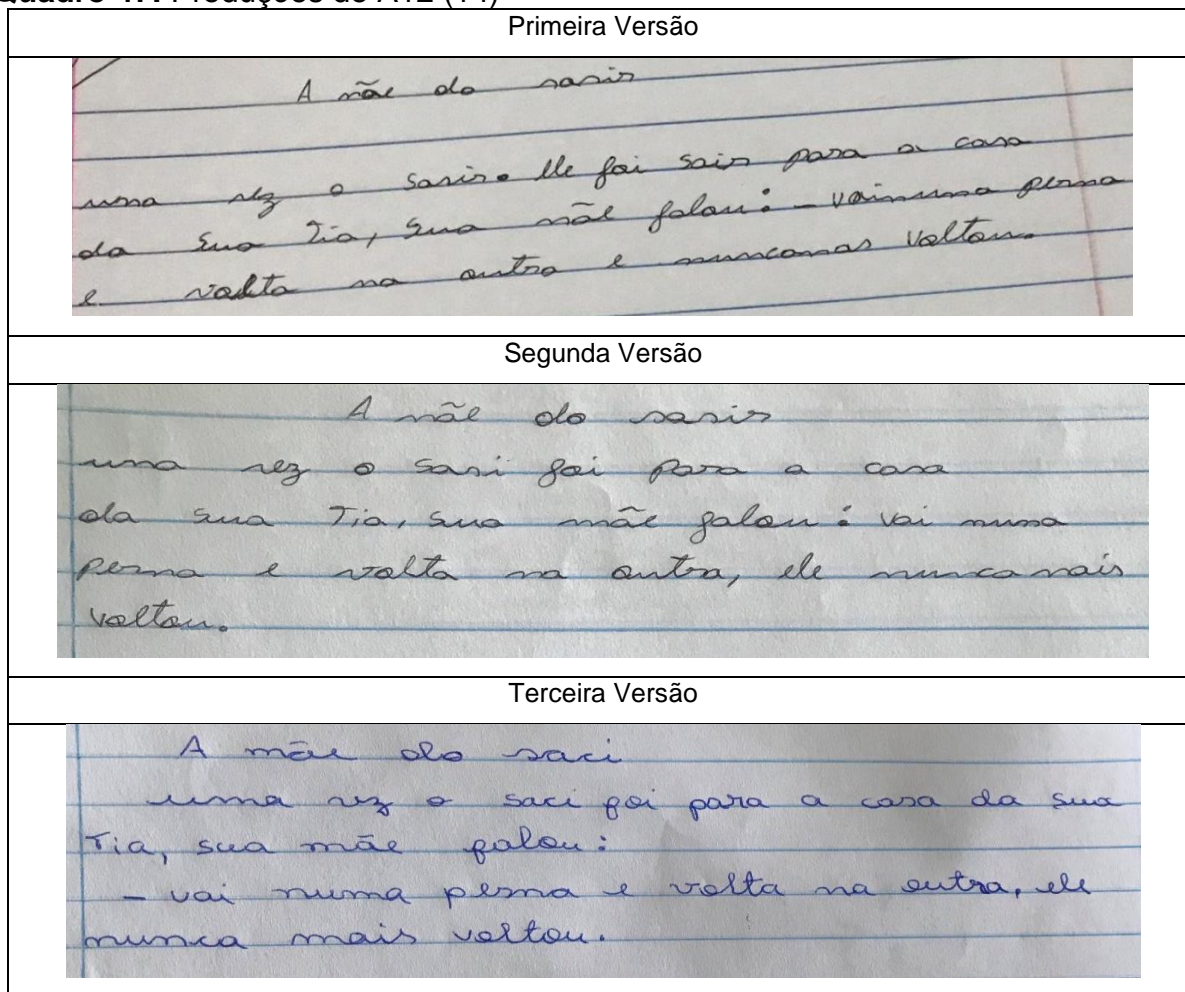 Primeira Versão
A mãe do sasir
uma vez o sasir. Ele foi sair para a casa
da sua Tia, sua mãe falou: - vainuma perna
e volta na outra e nuncamas voltou.
Segunda Versão
A mãe do sasir
uma vez o sasi foi para a casa
da sua Tia, sua mãe falou: vai numa
perna e volta na outra, ele nunca mais
voltou.
Terceira Versão
A mãe do saci
uma vez o saci foi para a casa da sua
Tia, sua mãe falou:
- vai numa perna e volta na outra, ele
nunca mais voltou.